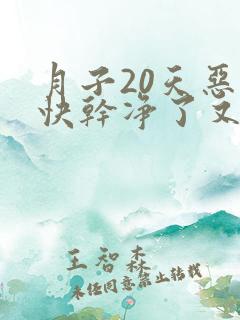 月子20天恶
快幹净了又
王智森
未经同意禁止转载